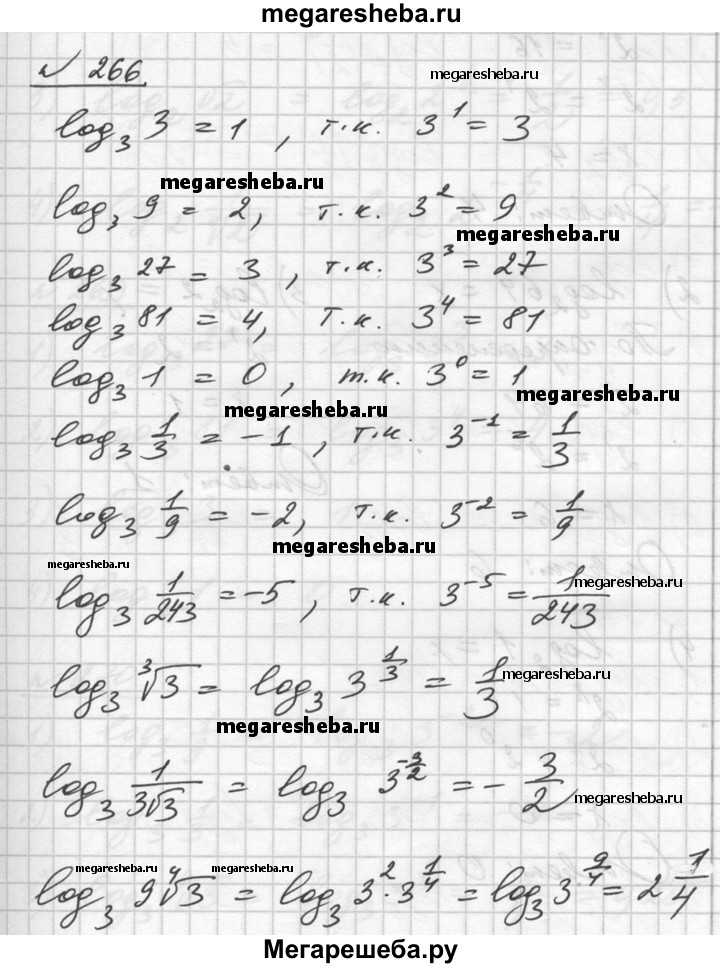 megaresheba.ru
№ 266.
megaresheba.ru
log₃ 3 = 1, т.к. 3¹ = 3
megaresheba.ru
log₃ 9 = 2, т.к. 3² = 9
megaresheba.ru
log₃ 27 = 3, т.к. 3³ = 27
log₃ 81 = 4, т.к. 3⁴ = 81
log₃ 1 = 0, т.к. 3⁰ = 1
megaresheba.ru
megaresheba.ru
log₃ 1/3 = -1, т.к. 3⁻¹ = 1/3
log₃ 1/9 = -2, т.к. 3⁻² = 1/9
megaresheba.ru
megaresheba.ru
megaresheba.ru
log₃ 1/243 = -5, т.к. 3⁻⁵ = 1/243
log₃ ∛3 = log₃ 3^(1/3) = 1/3
megaresheba.ru
megaresheba.ru
log₃ 1/(3√3) = log₃ 3^(-3/2) = - 3/2
megaresheba.ru
megaresheba.ru
megaresheba.ru
megaresheba.ru
log₃ 9∜3 = log₃ 3²·3^(1/4) = log₃ 3^(9/4) = 2 1/4
Мегарешеба.ру